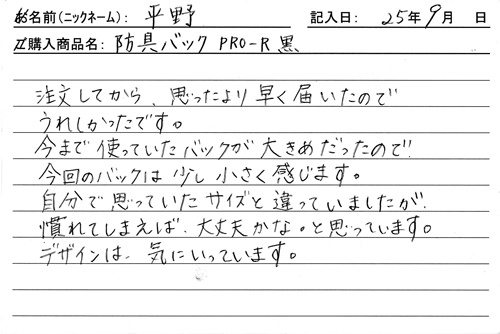 お名前(ニックネーム): 平野 記入日: 25年 9月 日
ご購入商品名: 防具バック PRO-R 黒
注文してから、思ったより早く届いたので
うれしかったです。
今まで使っていたバックが大きめだったので
今回のバックは少し小さく感じます。
自分で思っていたサイズと違っていましたが、
慣れてしまえば、大丈夫かな。と思っています。
デザインは、気にいっています。